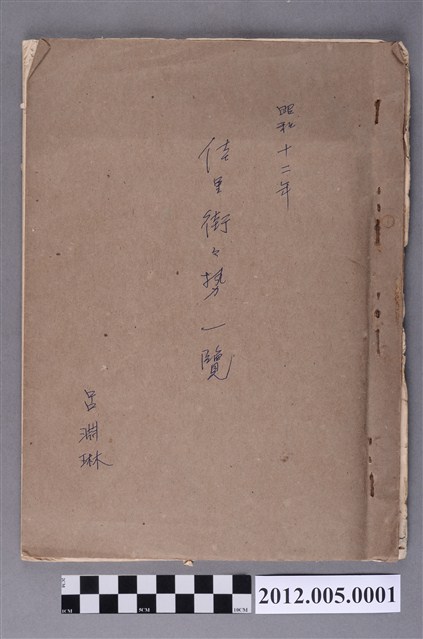 昭和十二年
佳里街々勢一覽
呂淵琳
2012.005.0001
1CM
5CM
10CM